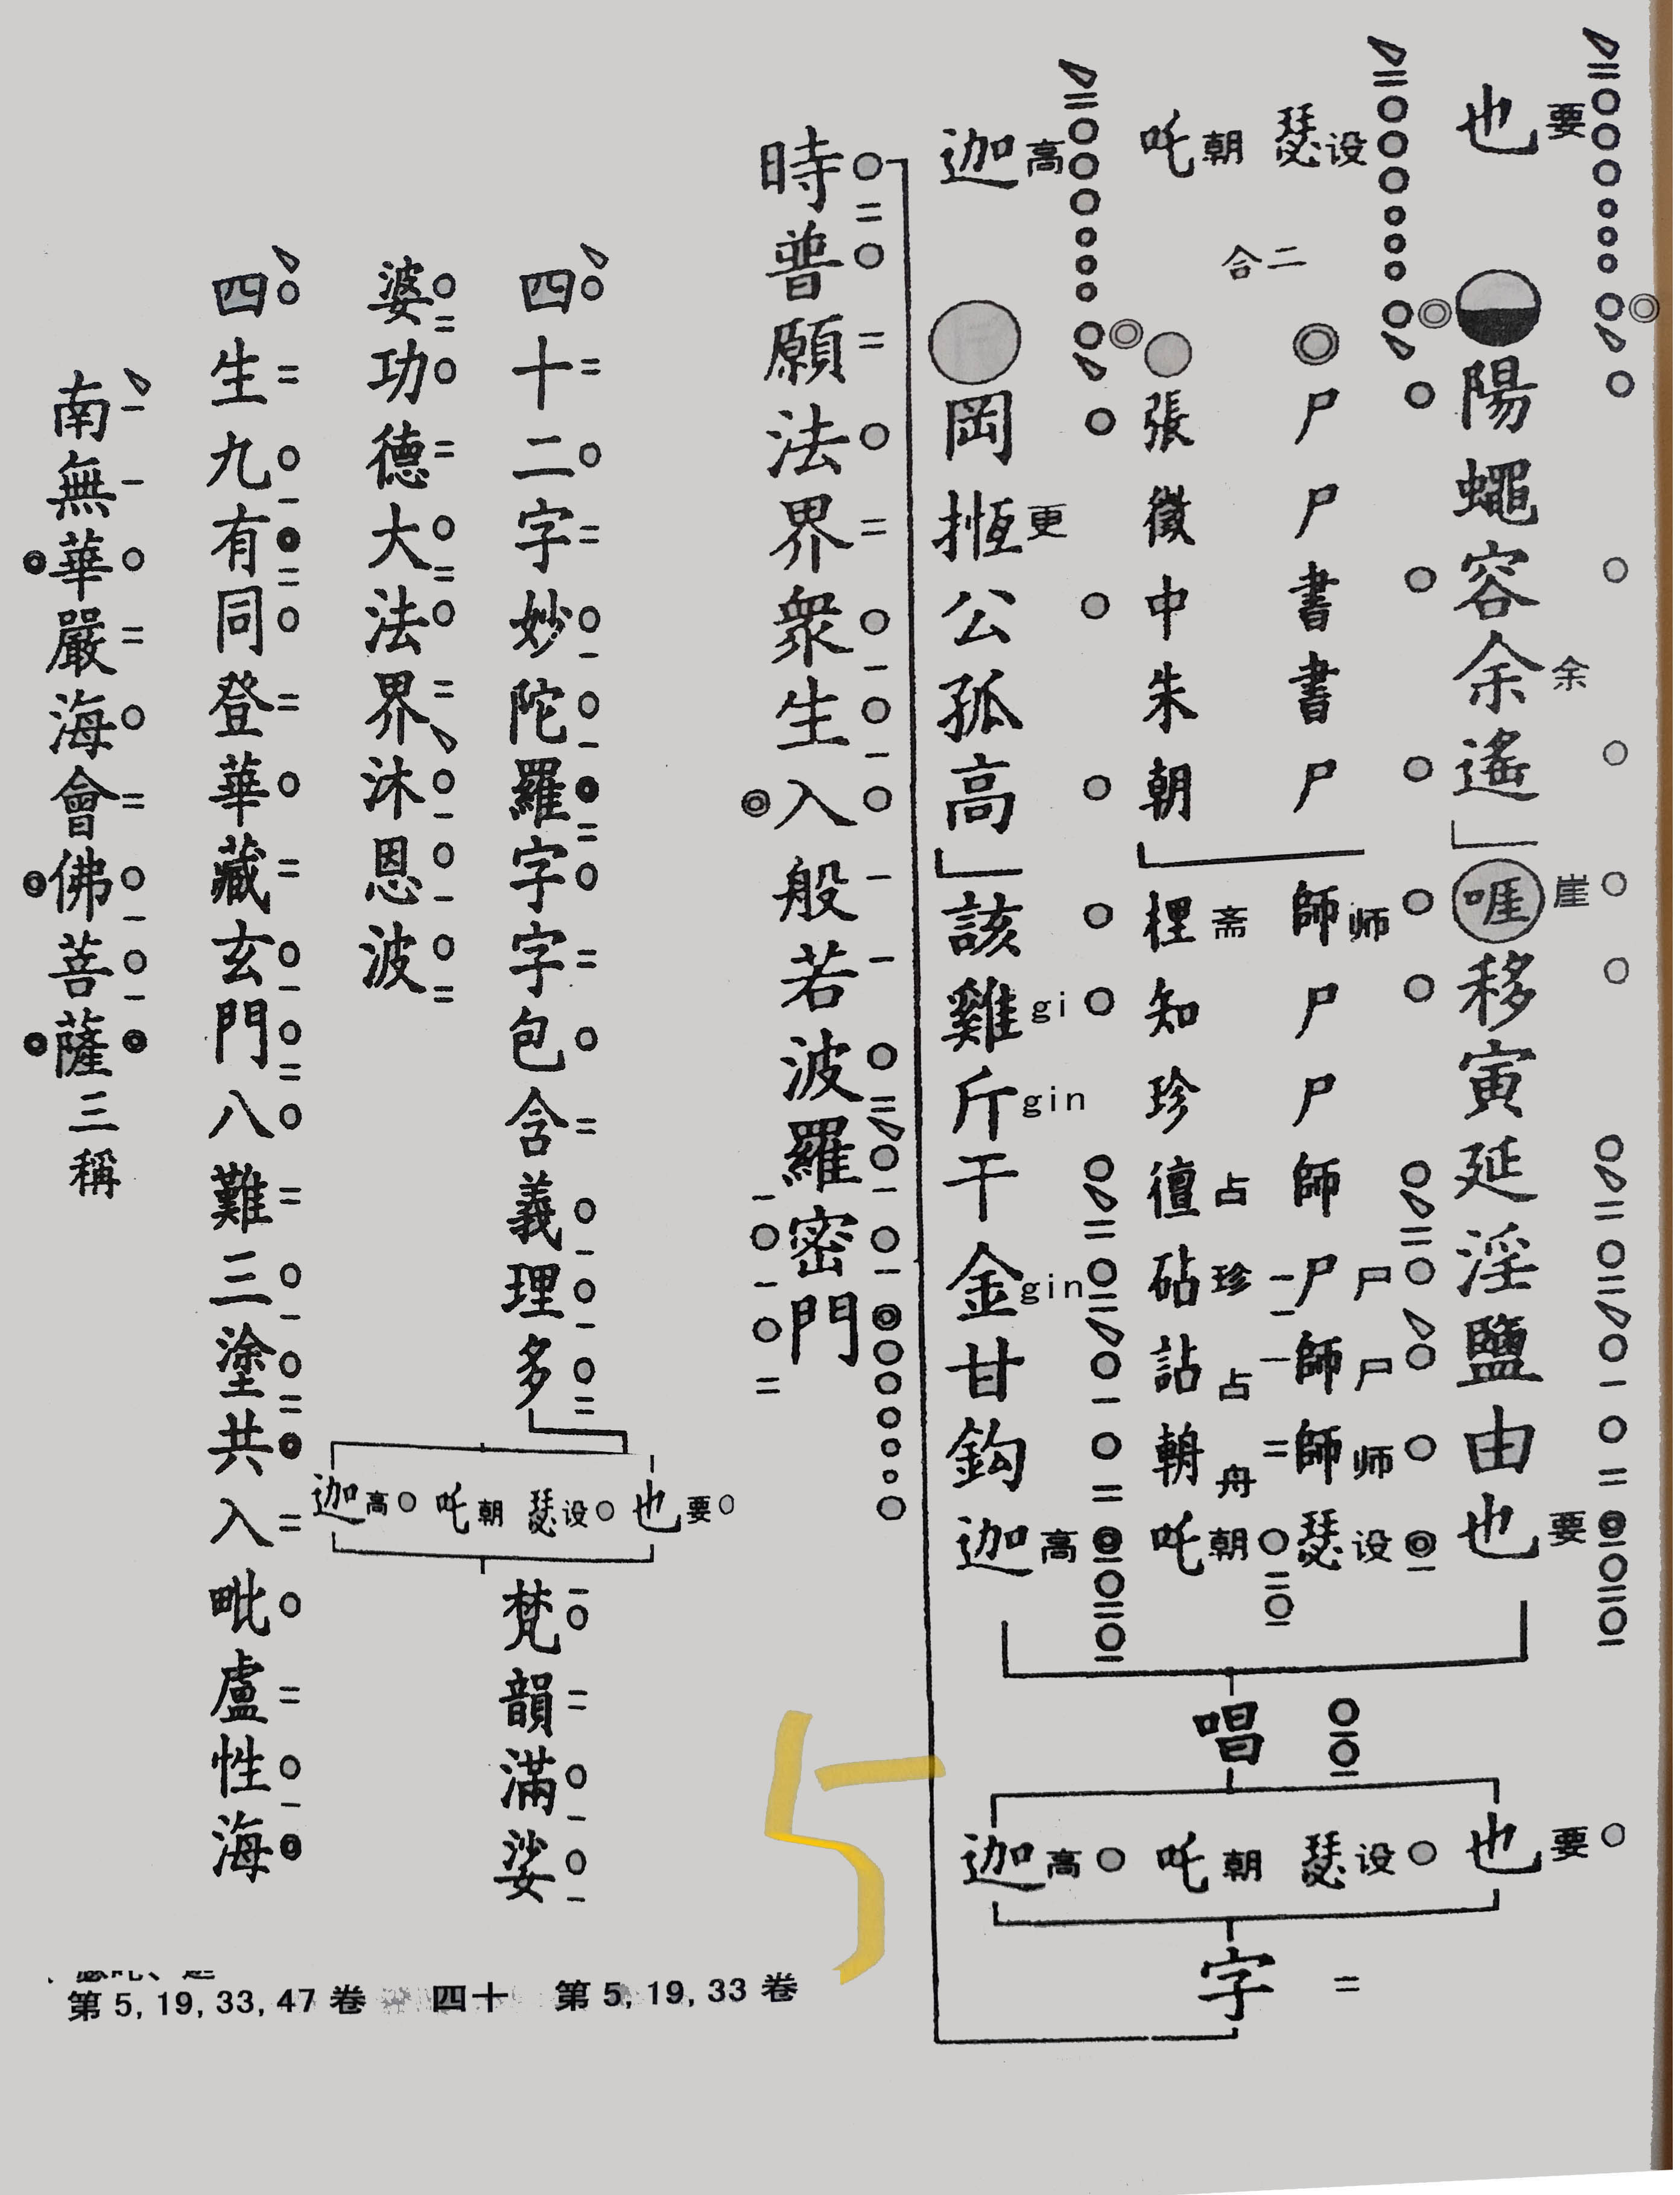 也要
陽蠅容余余遙
啀崖移寅延淫鹽由也要
瑟设
二合
尸尸書書尸
師师尸尸師尸尸師尸師师瑟设
吒朝
張徵中朱朝
𣖔斋知珍邅占砧珍詀占輈舟吒朝
迦高
岡揯更公孤高
該雞gi斤gin干金gin甘鈎迦高
唱
迦高 吒朝 瑟设 也要
字
時普願法界眾生入般若波羅密門
四十二字妙陀羅字字包含義理多
迦高 吒朝 瑟设 也要
梵韻滿娑
婆功德大法界沐恩波
四生九有同登華藏玄門八難三塗共入毗盧性海
南無華嚴海會佛菩薩三稱
5
第 5, 19, 33, 47 卷 四十 第 5, 19, 33 卷